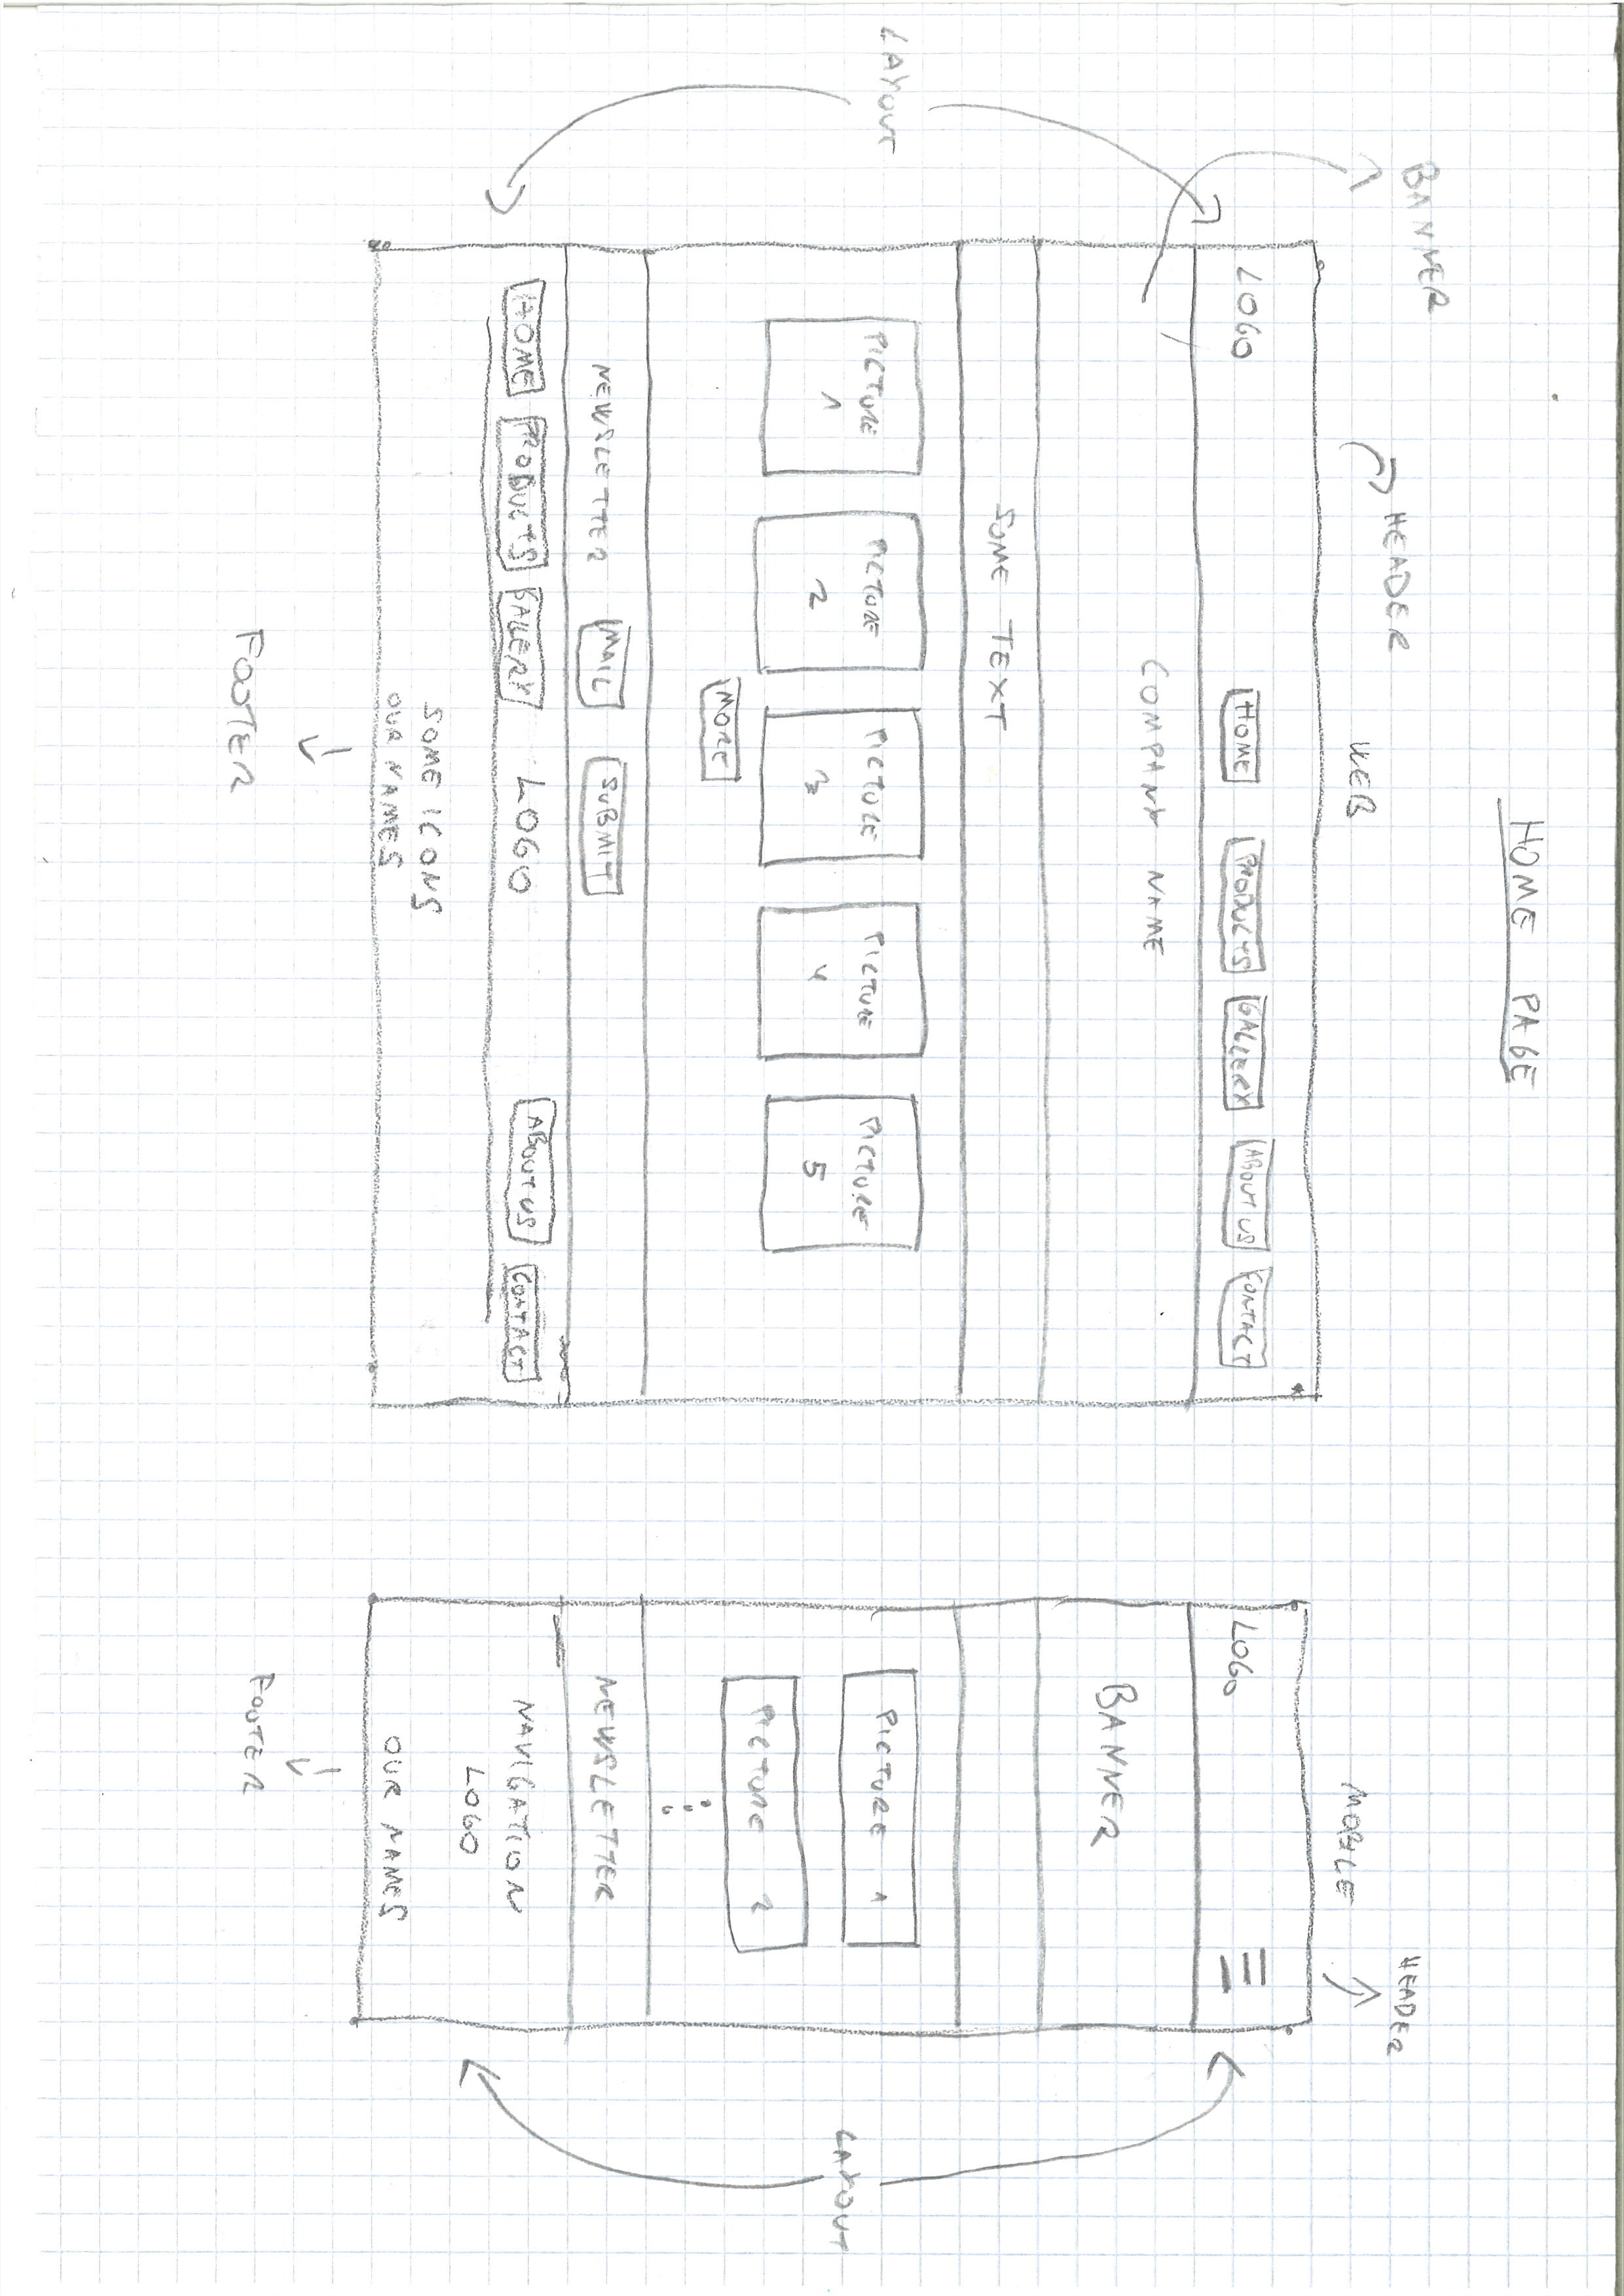 HOME PAGE
BANNER
HEADER
WEB
LOGO
HOME PRODUCTS GALLERY ABOUT US CONTACT
COMPANY NAME
SOME TEXT
LAYOUT
PICTURE 1
PICTURE 2
PICTURE 3
PICTURE 4
PICTURE 5
MORE
NEWSLETTER MAIL SUBMIT
HOME PRODUCTS GALLERY LOGO ABOUT US CONTACT
SOME ICONS
OUR NAMES
FOOTER
HEADER
MOBILE
LOGO
BANNER
PICTURE 1
PICTURE 2
NEWSLETTER
NAVIGATION
LOGO
OUR NAMES
FOOTER
LAYOUT